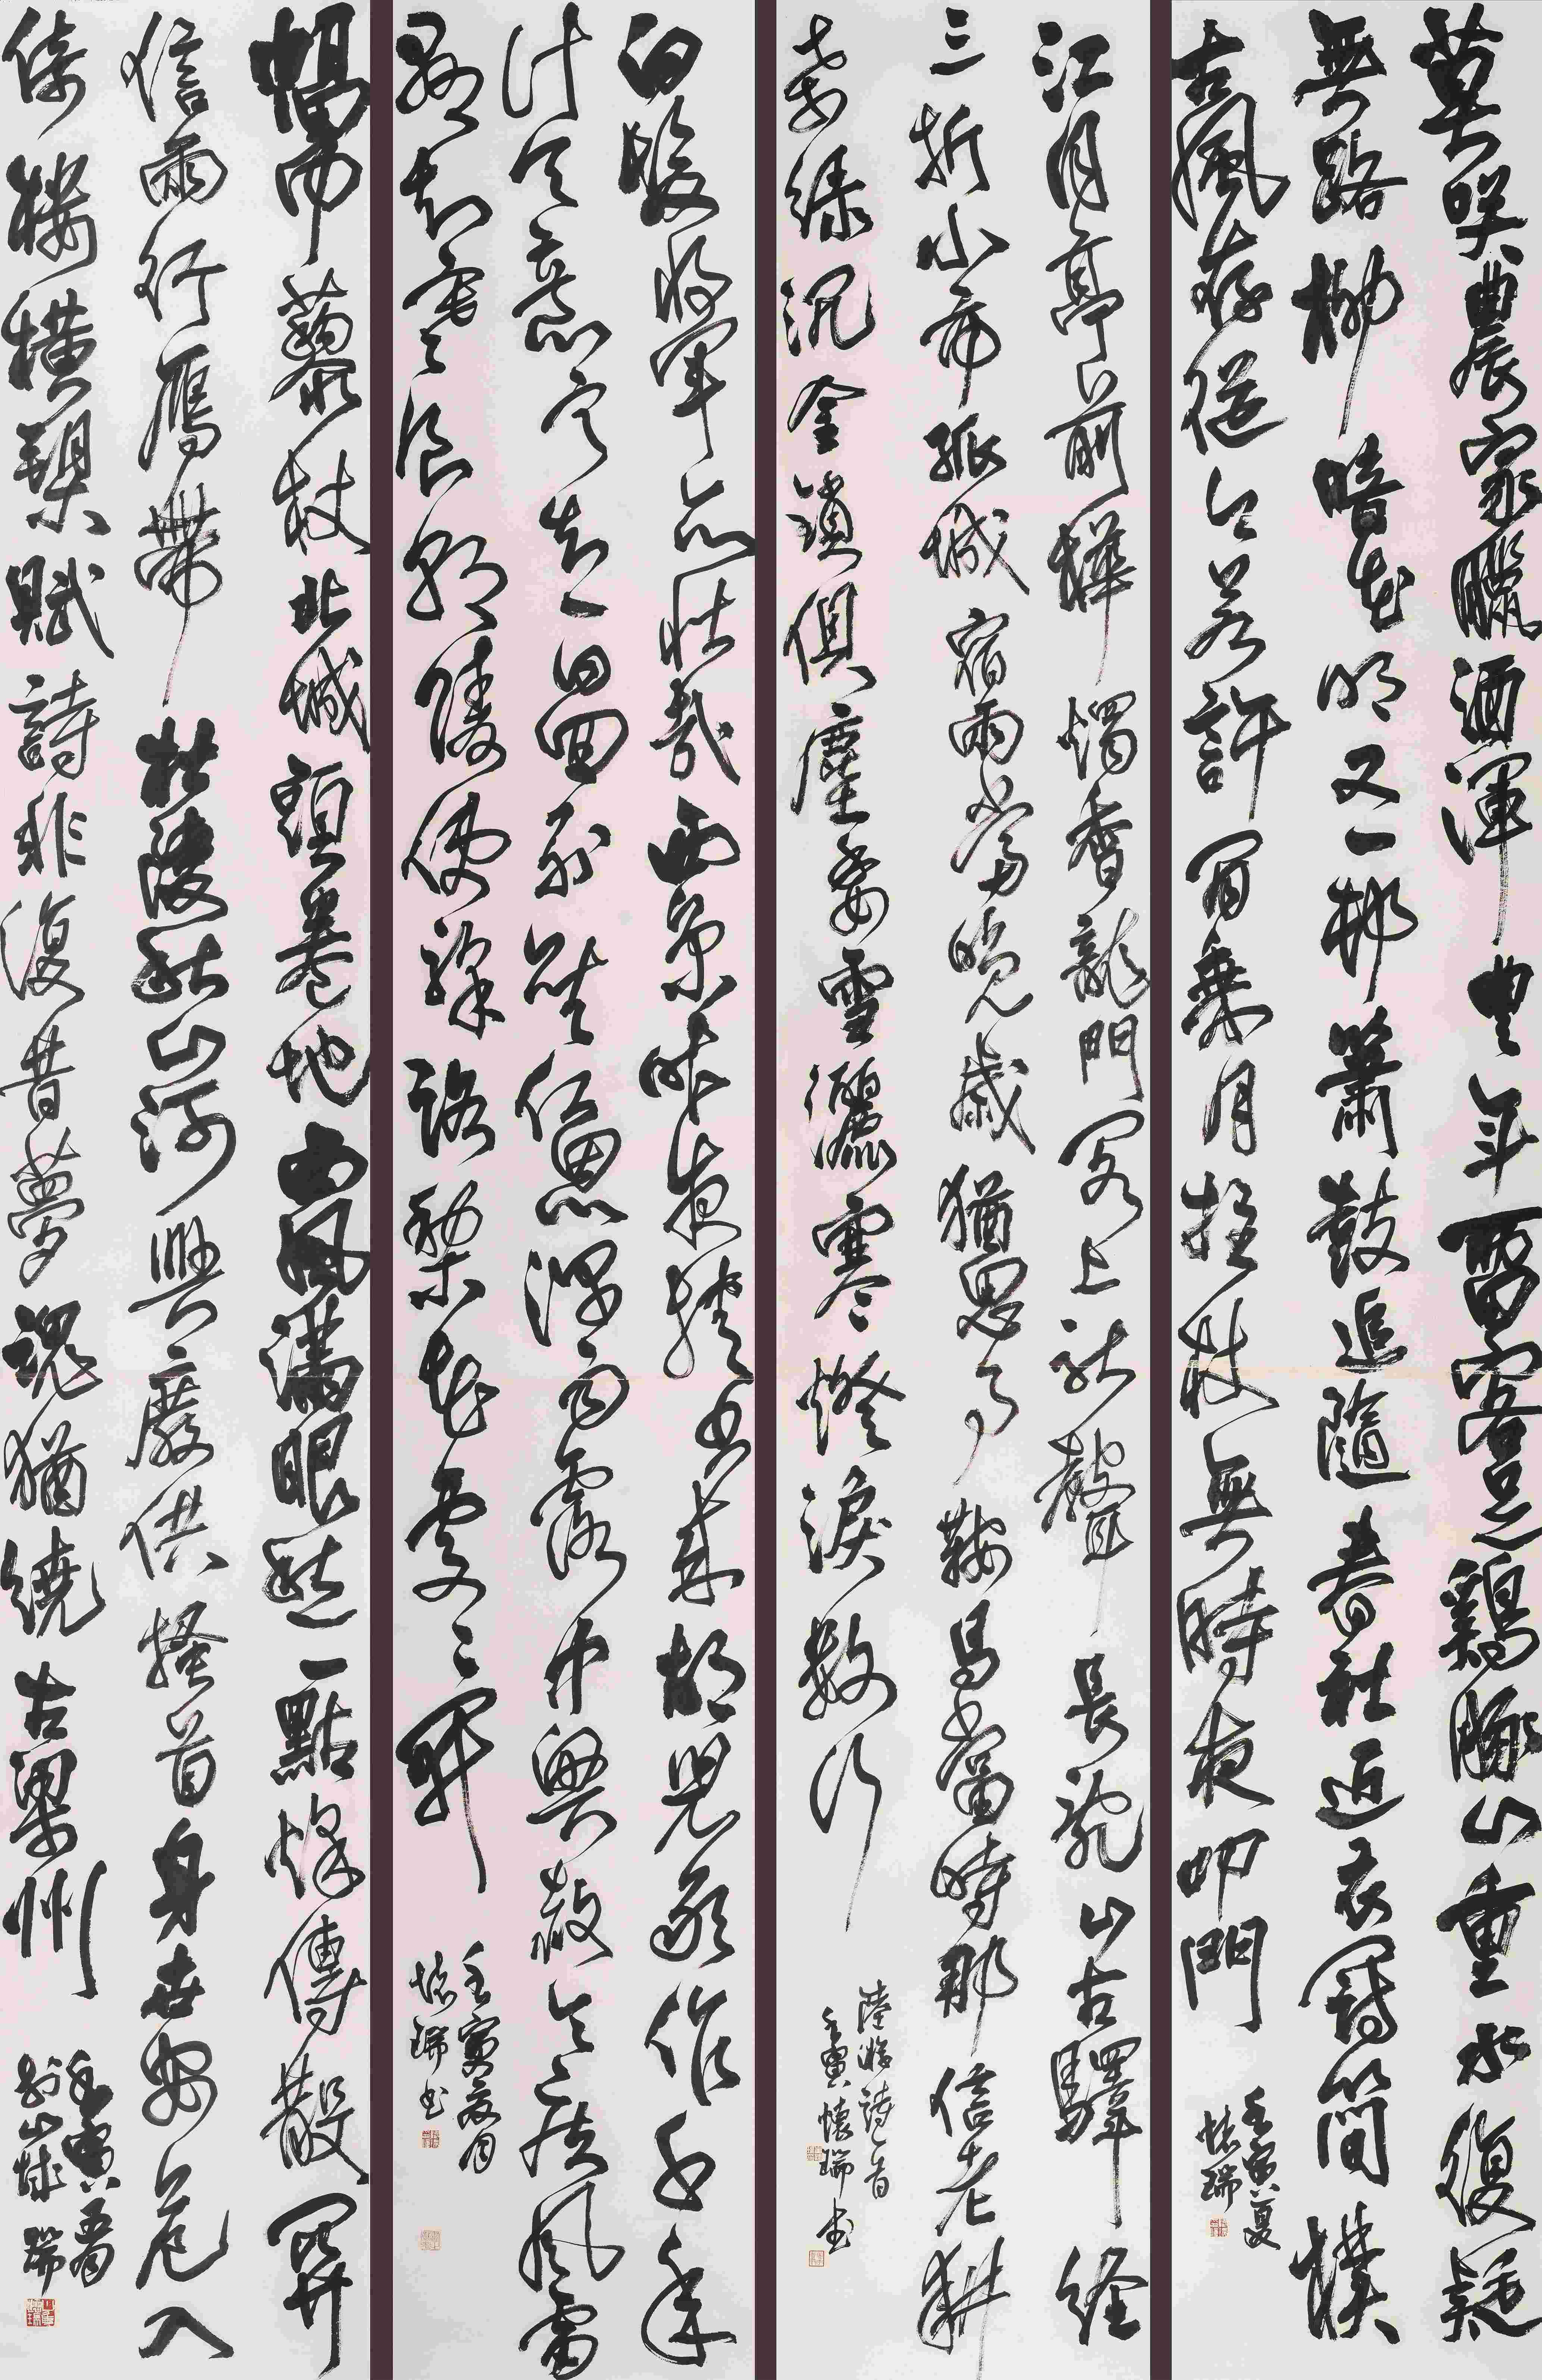 莫笑農家臘酒渾豐年留客足鷄豚山重水復疑
無路柳暗花明又一村簫鼓追隨春社近衣冠簡樸
古風存從今若許閑乘月拄杖無時夜叩門
壬寅夏
懷瑞
江月亭前樺燭香龍門閣上馱聲長亂山古驛經
三折小市孤城宿兩當晚歲猶思事鞍馬當時那信老耕
桑綠沉金鎖俱塵委雪灑寒燈淚數行
陸游詩一首
壬寅懷瑞書
白髮將軍亦壯哉西京昨夜捷書來胡兒敢作千年
計天意寧知一日回列聖仁恩深雨露中興赦令疾風雷
懸知寒食朝陵使驛路梨花處處開
壬寅夏月
懷瑞書
幅巾藜杖北城頭卷地西風滿眼愁一點烽傳散關
信兩行雁帶杜陵秋山河興廢供搔首身世安危入
倚樓橫槊賦詩非復昔夢魂猶繞古梁州
壬寅
瑞